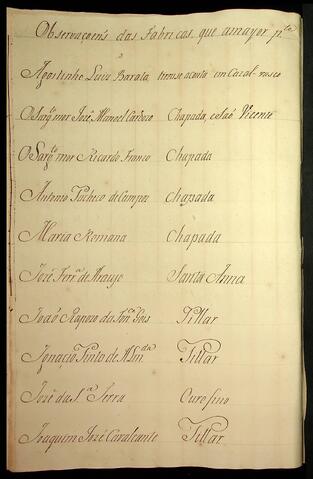 Observaçoens das Fabricas, que amayor p.te
Agostinho Luis Barata
O Sarg.to mor Joze Manoel Cardozo Chapada, e São Vicente
O Sarg.to mor Ricardo Franco Chapada
Antonio Pacheco de Campos Chapada
Maria Romana Chapada
José Ferr.a de Araujo Santa Anna
João Rapozo da Fon.ca Gois Pillar
Ignacio Pinto de Alm.da Pillar
José da S.a Serra Ourofino
Joaquim José Cavalcante Pillar